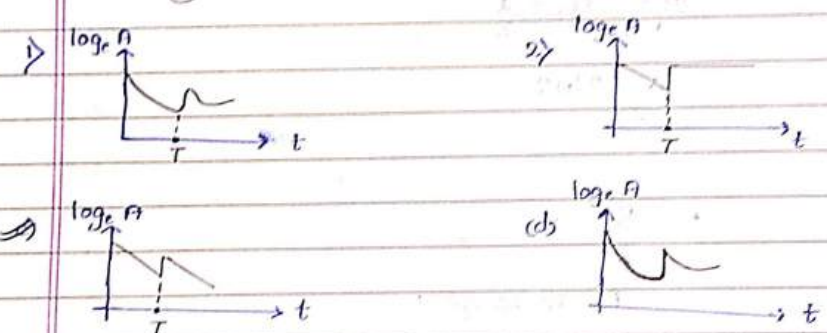 1) logₑ A
T t
2) logₑ A
T t
logₑ A
T t
(d) logₑ A
t